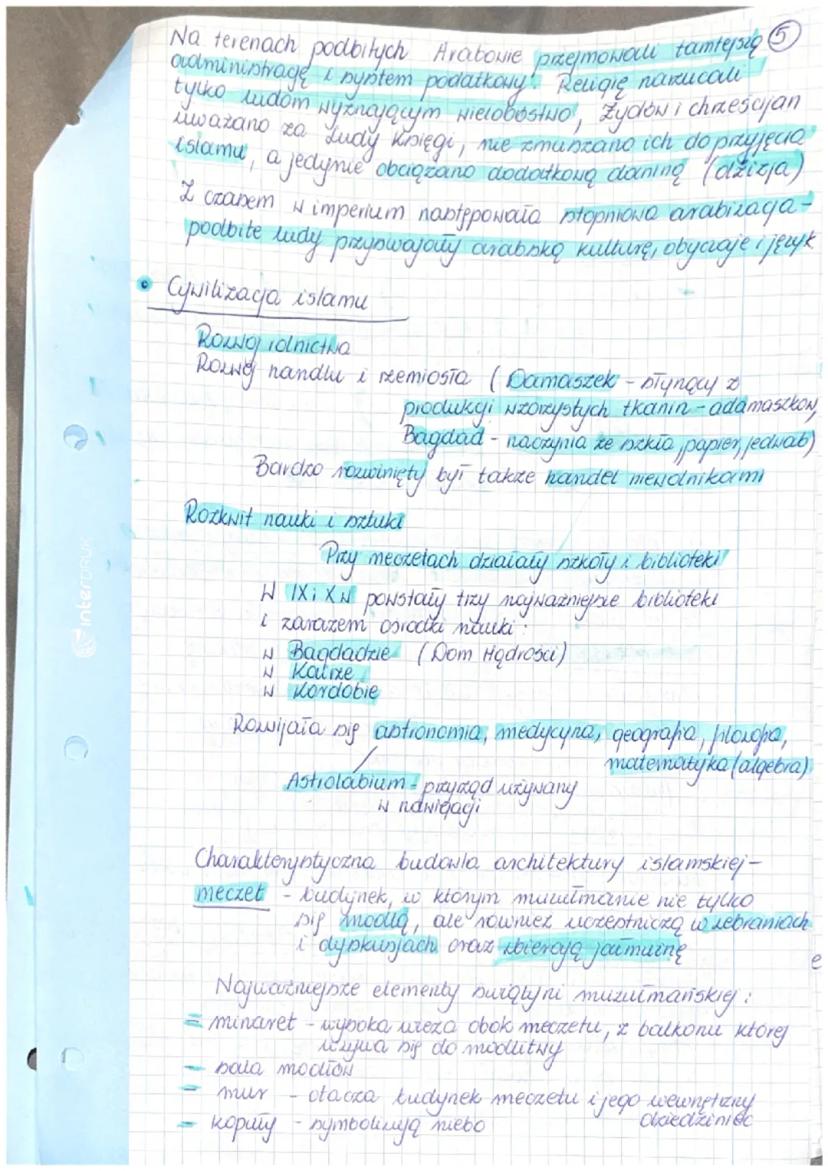 Na terenach podbitych Arabowie przejmowali tamtejszą ⑤
administrację i system podatkowy. Religię narzucali
tylko ludom wyznającym wielobóstwo, Żydów i chrześcijan
uważano za Ludy Księgi, nie zmuszano ich do przyjęcia
islamu, a jedynie obciążano dodatkową daniną (dżizja)
Z czasem w imperium następowała stopniowa arabizacja -
podbite ludy przyswajały arabską kulturę, obyczaje i język
• Cywilizacja islamu
Rozwój rolnictwa
Rozwój handlu i rzemiosła (Damaszek - słynący z
produkcji wzorzystych tkanin - adamaszków,
Bagdad - naczynia ze szkła, papier, jedwab)
Bardzo rozwinięty był także handel niewolnikami
Rozkwit nauki i sztuki
Przy meczetach działały szkoły i biblioteki
W IX i X w powstały trzy najważniejsze biblioteki
i zarazem ośrodki nauki:
w Bagdadzie (Dom Mądrości)
w Kairze
w Kordobie
Rozwijała się astronomia, medycyna, geografia, filozofia,
matematyka (algebra)
Astrolabium - przyrząd używany
w nawigacji
Charakterystyczna budowla architektury islamskiej -
meczet - budynek, w którym muzułmanie nie tylko
się modlą, ale również uczestniczą w zebraniach
i dyskusjach oraz zbierają jałmużnę
e
Najważniejsze elementy świątyni muzułmańskiej:
- minaret - wysoka wieża obok meczetu, z balkonu której
wzywa się do modlitwy
- sala modłów
- mur - otacza budynek meczetu i jego wewnętrzny
dziedziniec
- kopuły - symbolizują niebo
interDRUK